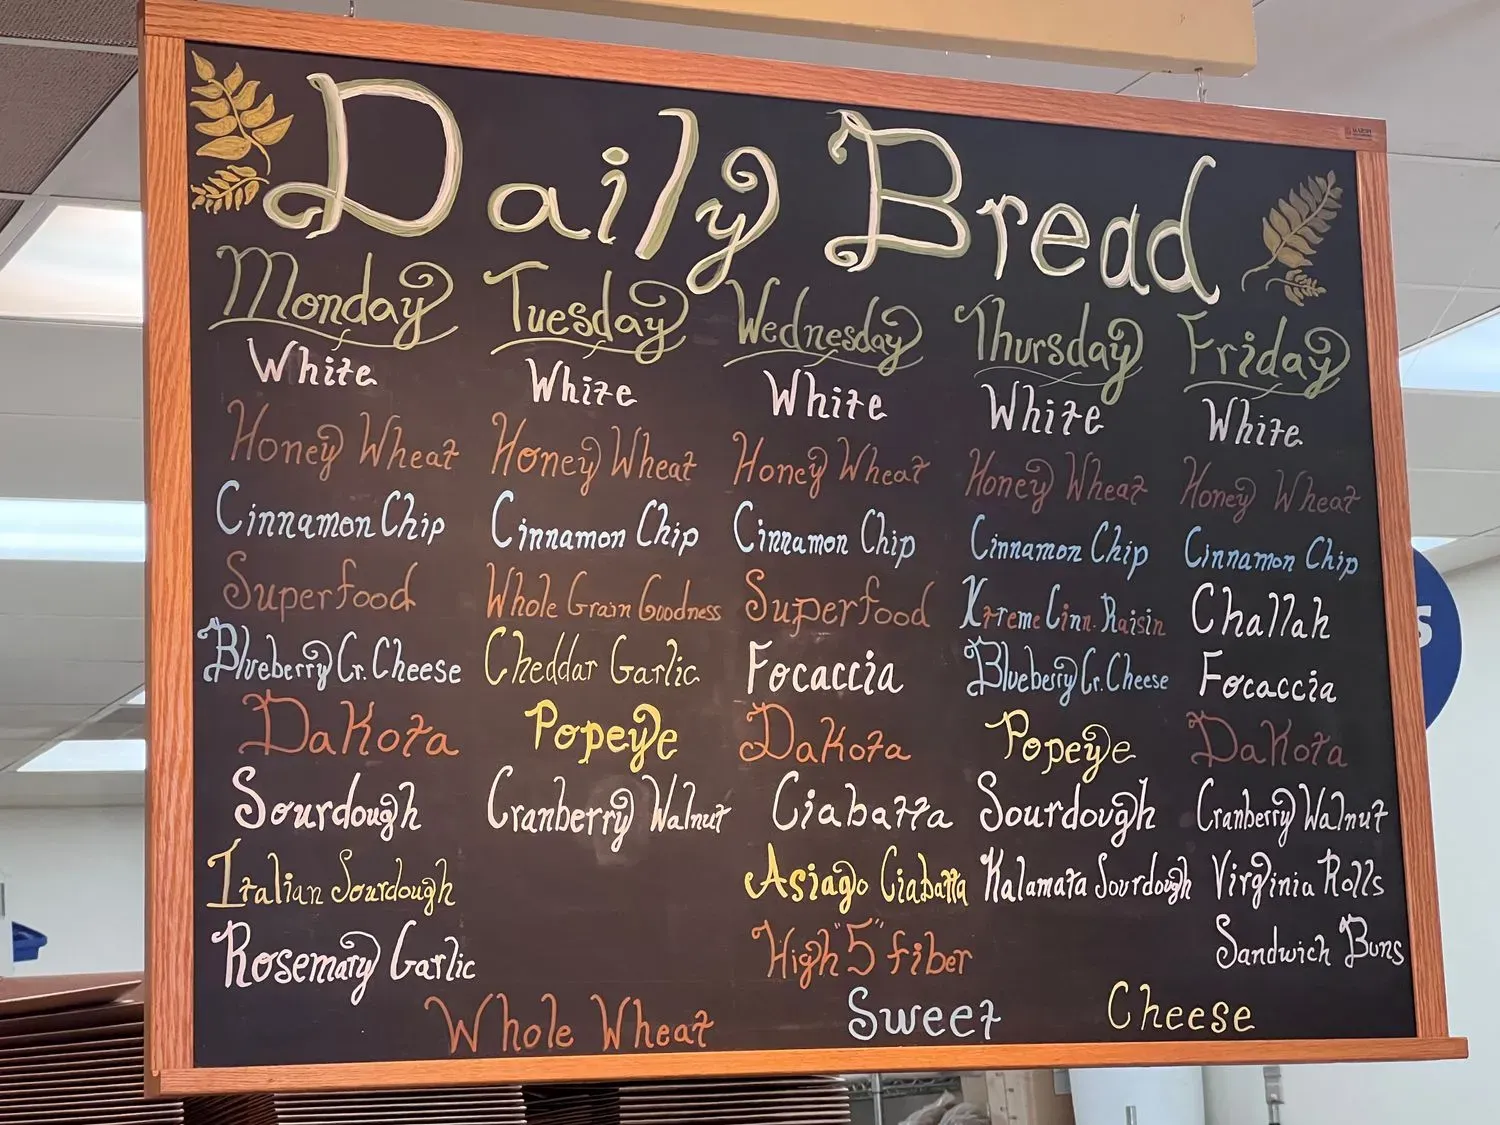 Daily Bread
Monday
White
Honey Wheat
Cinnamon Chip
Superfood
Blueberry Cr. Cheese
Dakota
Sourdough
Italian Sourdough
Rosemary Garlic
Tuesday
White
Honey Wheat
Cinnamon Chip
Whole Grain Goodness
Cheddar Garlic
Popeye
Cranberry Walnut
Wednesday
White
Honey Wheat
Cinnamon Chip
Superfood
Focaccia
Dakota
Ciabatta
Asiago Ciabatta
High "5" fiber
Thursday
White
Honey Wheat
Cinnamon Chip
Xtreme Cinn. Raisin
Blueberry Cr. Cheese
Popeye
Sourdough
Kalamata Sourdough
Friday
White
Honey Wheat
Cinnamon Chip
Challah
Focaccia
Dakota
Cranberry Walnut
Virginia Rolls
Sandwich Buns
Whole Wheat
Sweet
Cheese
S